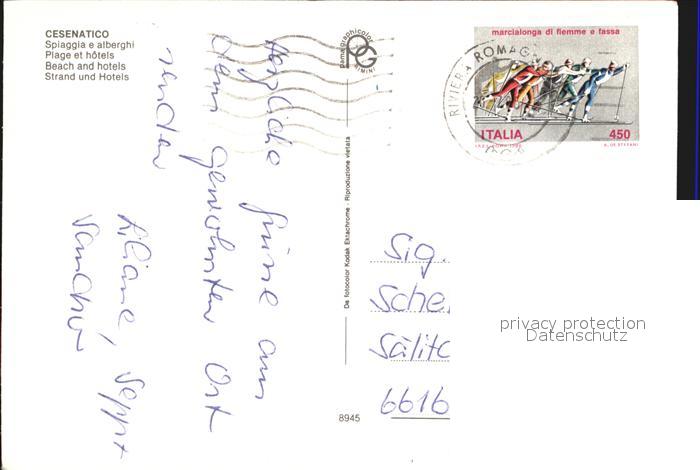 CESENATICO
Spiaggia e alberghi
Plage et hôtels
Beach and hotels
Strand und Hotels
Herzliche Grüsse aus
dem gewohnten Ort
senden
Liliane, Seppi +
Sandro
gama graphicolor
RIMINI
De fotocolor Kodak Ektachrome - Riproduzione vietata
8945
RIVIERA ROMAG
marcialonga di fiemme e fassa
ITALIA 450
Sig.
Sche
6616
privacy protection
Datenschutz